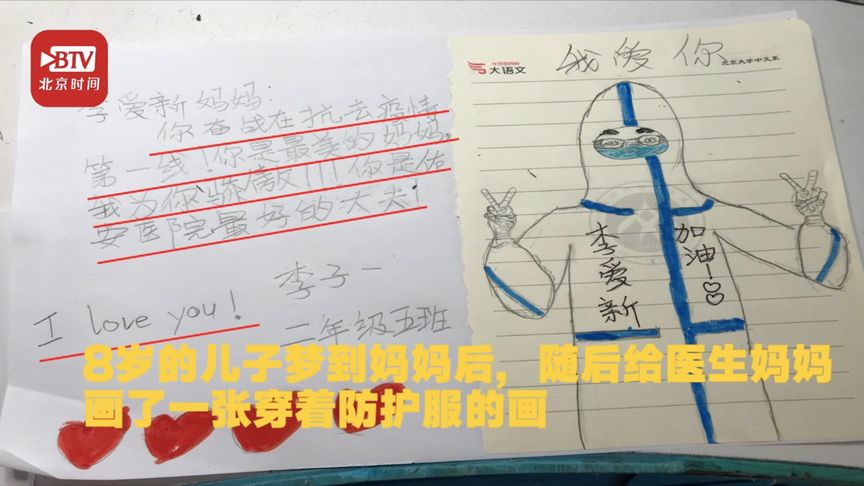 BTV
北京时间
李爱新妈妈:
你奋战在抗去疫情
第一线!你是最美的妈妈。
我为你骄傲!!!你是佑
安医院最好的大夫!
李子一
I love you!
二年级五班
大语文
北京大学中文系
我爱你
李爱新
加油!
8岁的儿子梦到妈妈后,随后给医生妈妈
画了一张穿着防护服的画